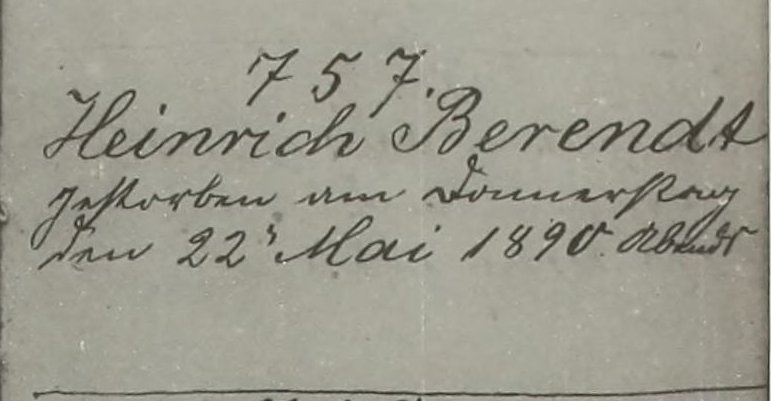 757.
Heinrich Berendt
gestorben am Donnerstag
den 22t Mai 1890. Abends